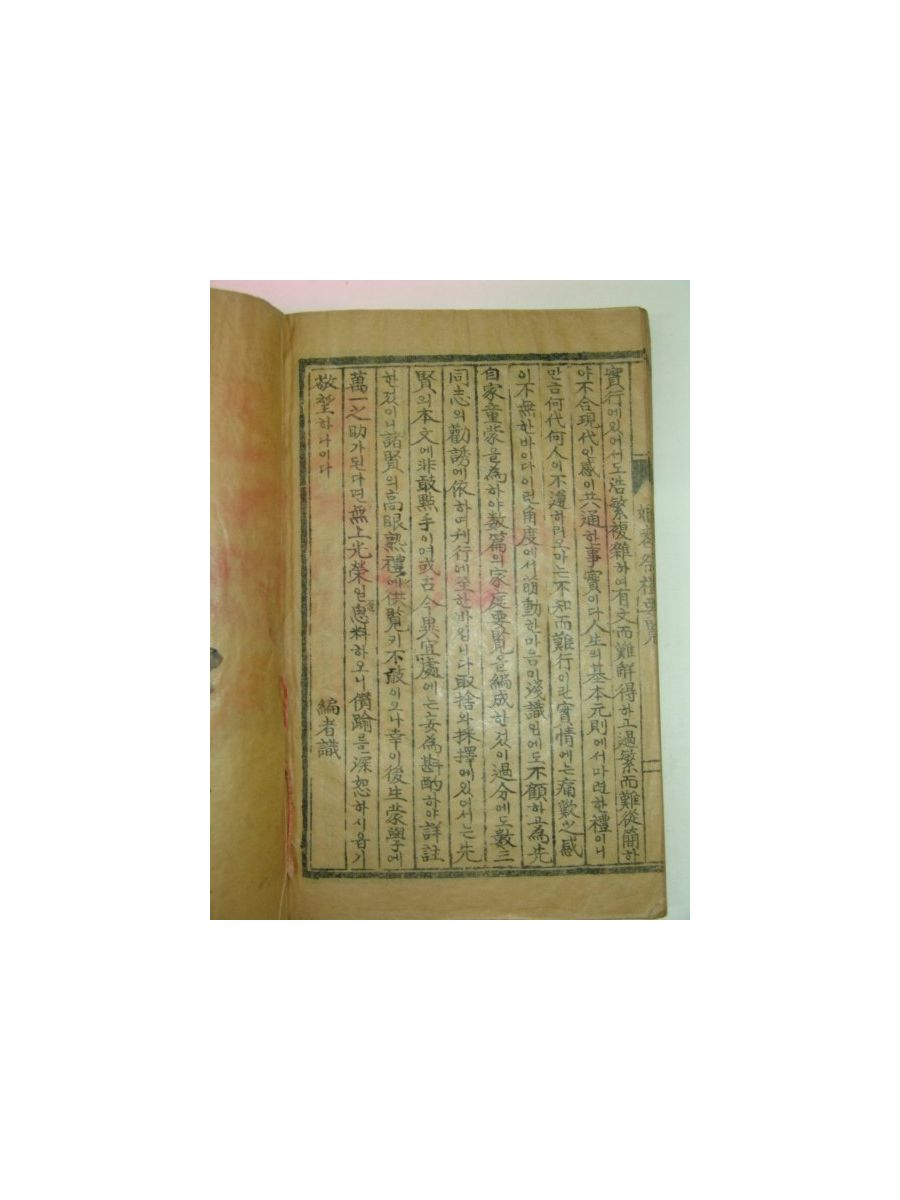 實行에있어서도浩繁複雜하여有文而難解得하고過繁而難從簡하
야不合現代인感이共通한事實이다人生의基本元則에서마련한禮이니
만큼何代何人이不遵하리오마는不知而難行이란實情에는痛歎之感
이不無한바이다이런角度에서萌動한마음이淺識임에도不顧하고為先
自家童蒙을為하야数篇의家庭要覧을編成한것이過分에도數三
同志의勸誘에依하며刊行에至한바입니다取捨와採擇에있어서는先
賢의本文에非敢點手이며或古今異宜處에는妄為斟酌하야詳註
한것이니諸賢의高眼熟禮에供覧키不敢이오나幸이後生蒙學에
萬一之助가된다면無上光榮일思料하오니僭踰를深恕하시옵기
敬望하나이다 編者識
禮要覧